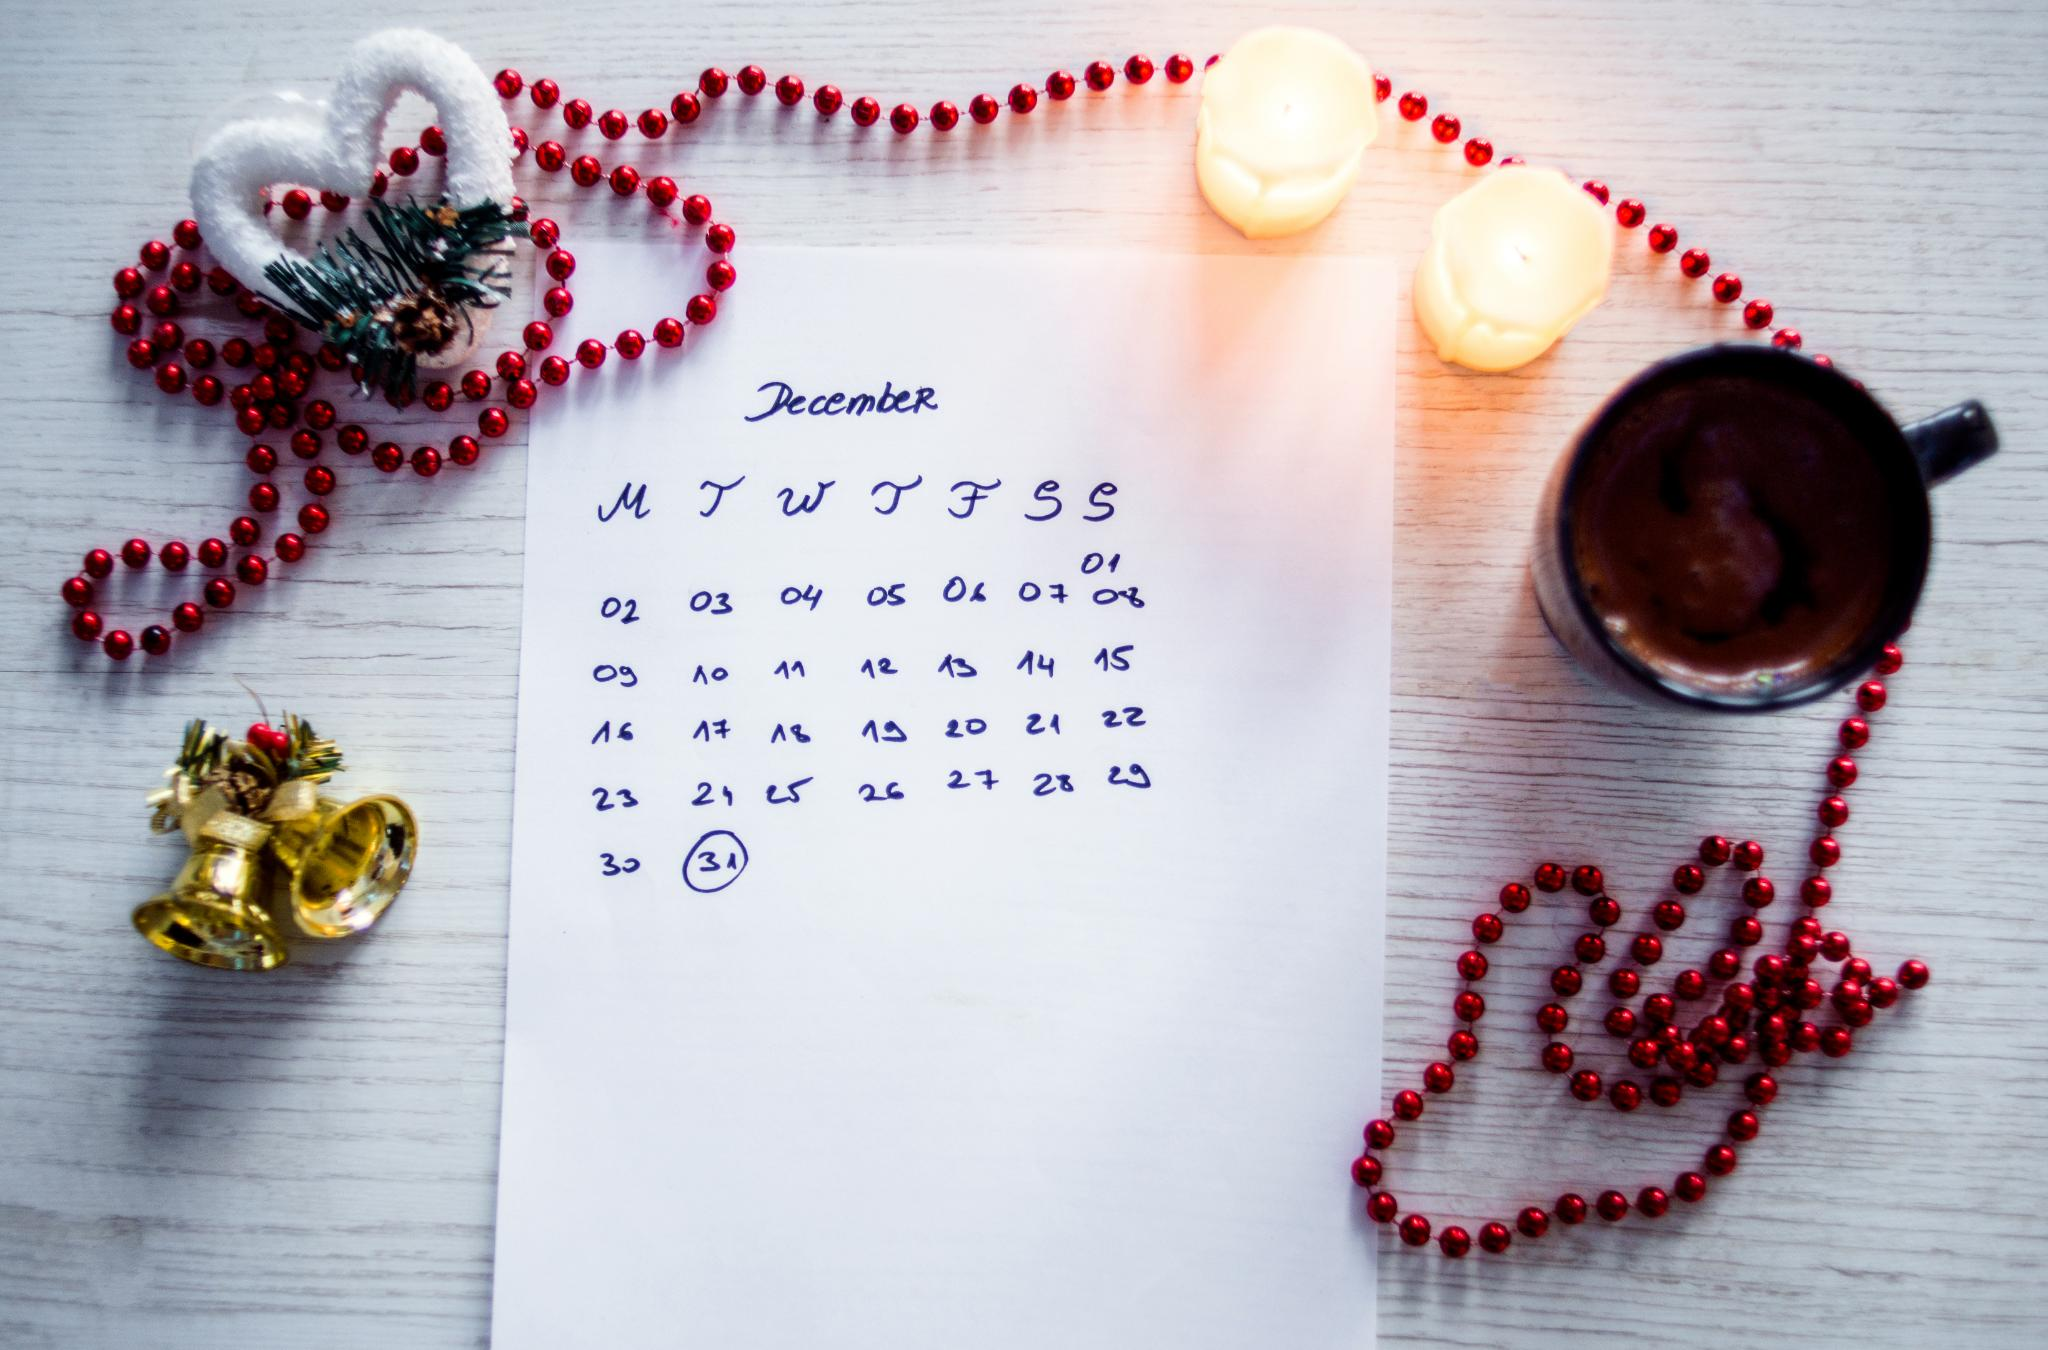 December
M T W T F S S
01
02 03 04 05 06 07 08
09 10 11 12 13 14 15
16 17 18 19 20 21 22
23 24 25 26 27 28 29
30 31